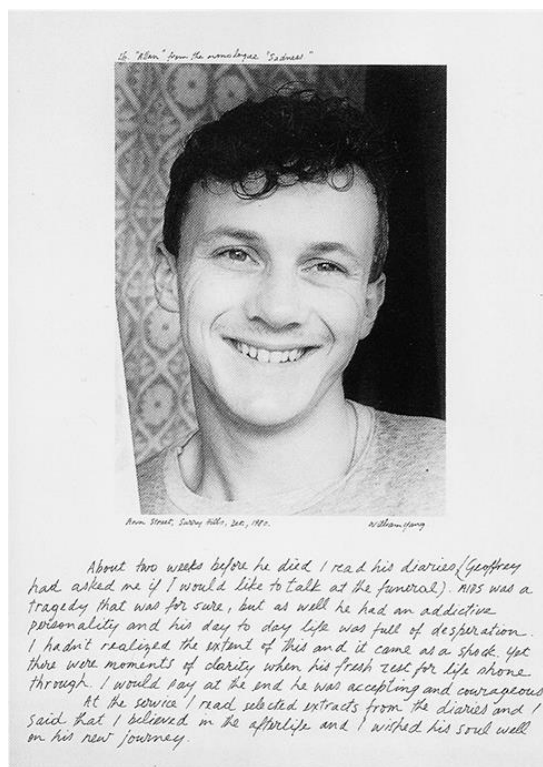 16. "Allan" from the monologue "Sadness"
Street, Surry Hills, 1980.
William Yang
About two weeks before he died I read his diaries (Geoffrey
had asked me if I would like to talk at the funeral). AIDS was a
tragedy that was for sure, but as well he had an addictive
personality and his day to day life was full of desperation.
I hadn't realized the extent of this and it came as a shock. Yet
there were moments of clarity when his fresh zest for life shone
through. I would say at the end he was accepting and courageous
At the service I read selected extracts from the diaries and I
said that I believed in the afterlife and I wished his soul well
on his new journey.